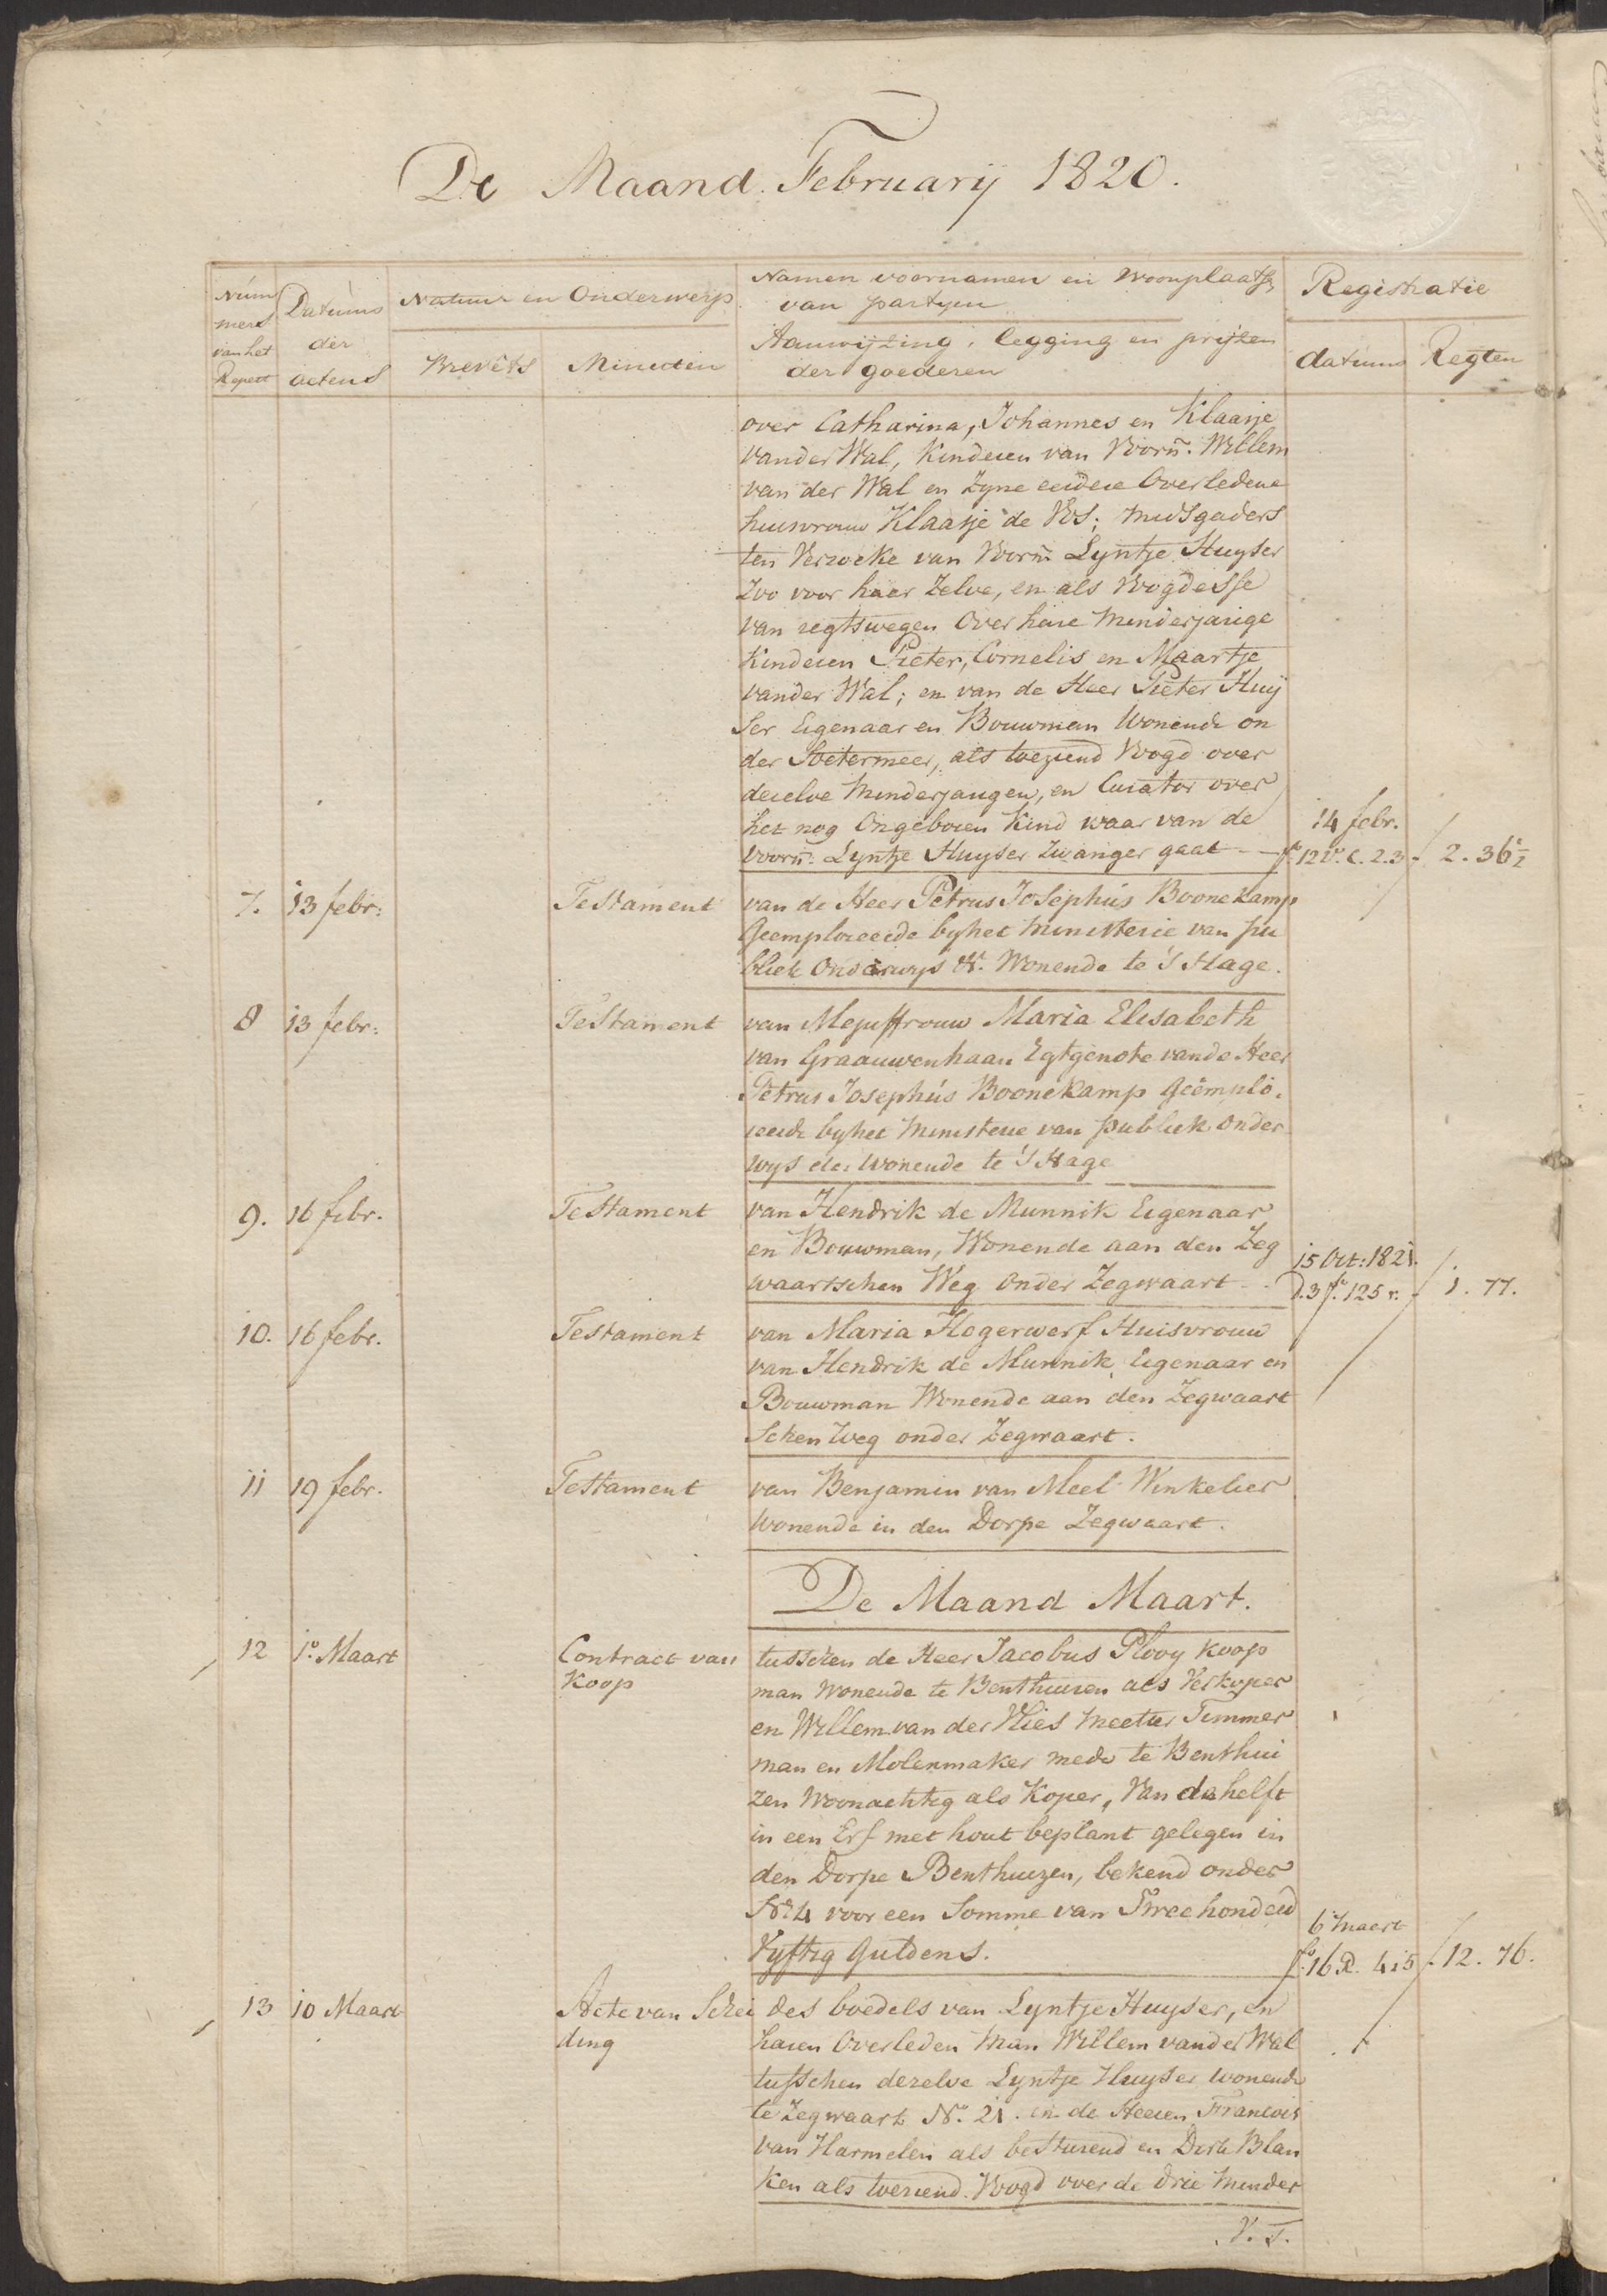 De Maand February 1820.
Num
mers
van het
Repert
Datums
der
actens
Natuur en Onderwerp
Brevêts
Minuten
Namen voornamen en Woonplaats
van partyen
Aanwijzing, legging en prijzen
der goederen
Registratie
datums
Regten
over Catharina, Johannes en Klaasje
van der Wal, Kinderen van Voorn. Willem
van der Wal en zyne eerdere Overledene
huisvrouw Klaasje de Vos; mitsgaders
ten Verzoeke van Voorn Lyntje Huyser
Zoo voor haar Zelve, en als Voogdesse
van regtswegen Over hare minderjarige
Kinderen Pieter, Cornelis en Maartje
van der Wal; en van de Heer Pieter Huy
ser Eigenaar en Bouwman Wonende on
der Soetermeer, als toeziend Voogd over
dezelve Minderjarigen, en Curator over
het nog Ongeboren Kind waar van de
14 febr.
voorn. Lyntje Huyser zwanger gaat - fo 12 vo. C. 2.3 - 2. 36½
7. 13 febr: Testament van de Heer Petrus Josephus Boonekamp
Geemploieerde by het Ministerie van pu
bliek Onderwys &c. Wonende te 's Hage.
8 13 febr: Testament van Mejuffrouw Maria Elisabeth
van Graauwenhaan Egtgenote van de Heer
Petrus Josephus Boonekamp Geëmplo.
ieerde by het Ministerie van publiek onder
wys etc: Wonende te 's Hage
9. 16 febr. Testament van Hendrik de Munnik Eigenaar
en Bouwman, Wonende aan den Zeg
15 Oct: 1821.
waartschen Weg Onder Zegwaart - D. 3 fo. 125 r. 1. 77.
10. 16 febr. Testament van Maria Hogerwerf Huisvrouw
van Hendrik de Munnik, Eigenaar en
Bouwman Wonende aan den Zegwaart
schen Weg onder Zegwaart.
11 19 febr. Testament van Benjamin van Meel Winkelier
Wonende in den Dorpe Zegwaart.
De Maand Maart.
12 1o. Maart Contract van tusschen de Heer Jacobus Plooy Koop
Koop man Wonende te Benthuizen als Verkoper
en Willem van der Vlies Meester Timmer
man en Molenmaker mede te Benthui
zen Woonachtig als Koper, Van de helft
in een Erf met hout beplant gelegen in
den Dorpe Benthuizen, bekend onder
No 4 voor een Somme van Twee honderd
6 Maart
Vyftig Guldens. fo. 16 R. 4 i 5 f. 12. 76.
13 10 Maart Acte van Schei des boedels van Lyntje Huyser, en
ding haren Overleden Man Willem van der Wal
tusschen dezelve Lyntje Huyser wonende
te Zegwaart No. 21. en de Heeren Francois
van Harmelen als besturend en Dirk Blan
ken als toeziend Voogd over de drie Minder
V. S.